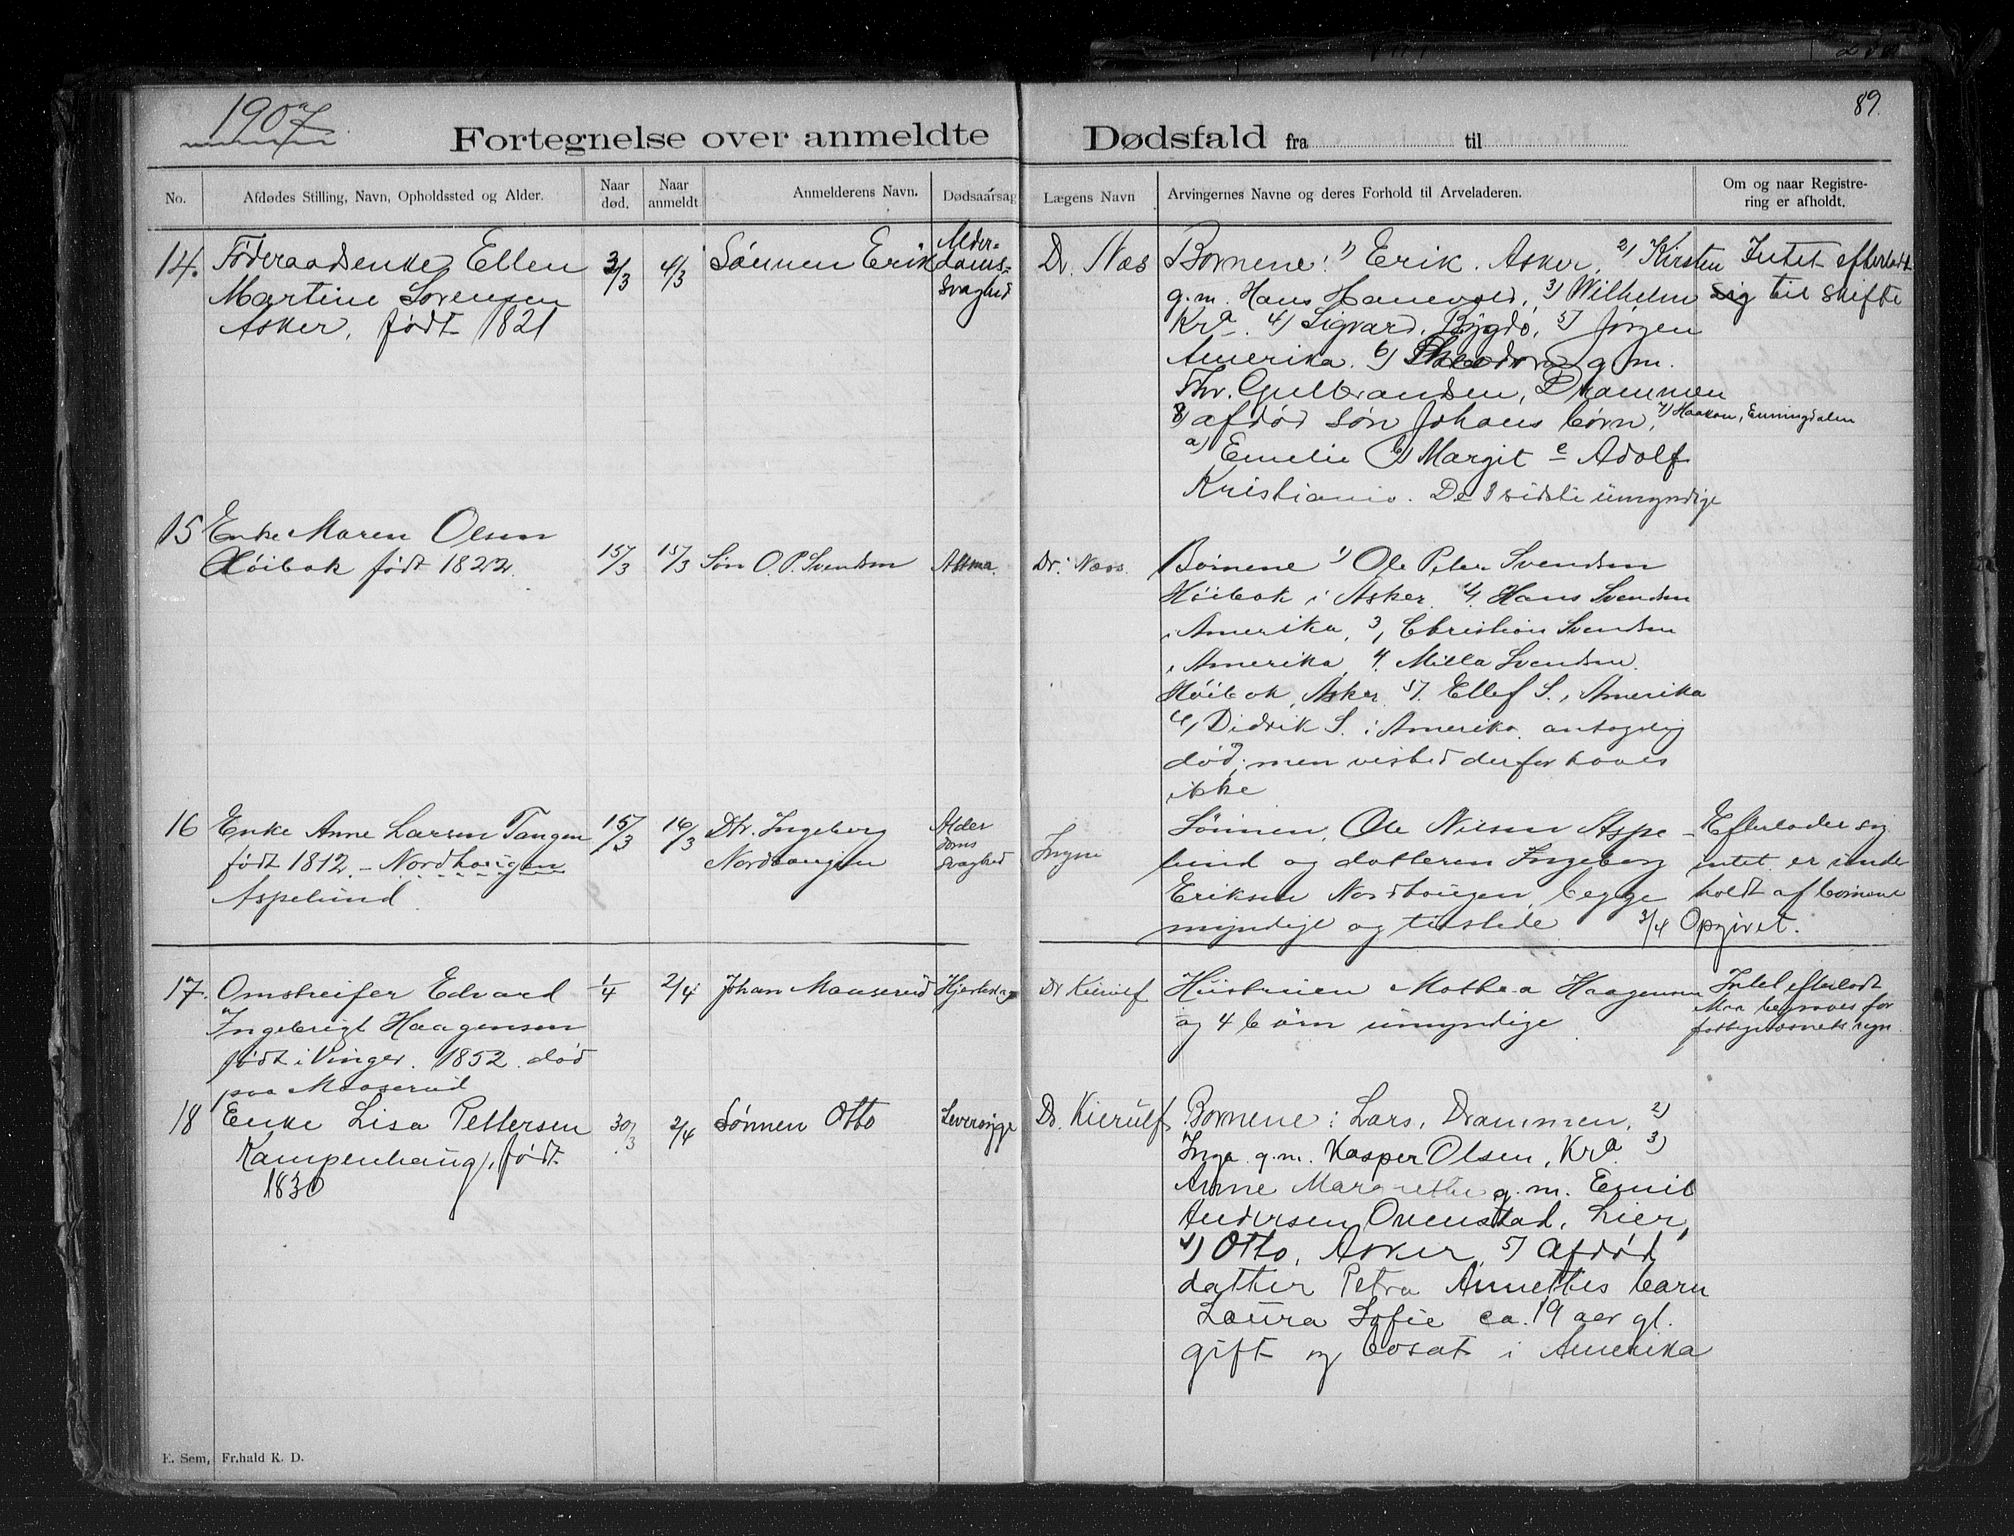 1907
89.
Fortegnelse over anmeldte Dødsfald fra til
No. Afdødes Stilling, Navn, Opholdssted og Alder. Naar død. Naar anmeldt. Anmelderens Navn. Dødsaarsag Lægens Navn Arvingernes Navne og deres Forhold til Arveladeren. Om og naar Registrering er afholdt.
14. Føderaadsenke Ellen
Martine Sorensen
Asker, født 1821
3/3 4/3 Sønnen Erik
Alder-
doms-
svaghed
Dr. Næs
Børnene: 1) Erik. Asker, 2) Kirsten
g.m. Hans Hanevold, 3) Wilhelm
Kra. 4) Sigvard, Bygdø, 5) Jørgen
Amerika. 6) Theodora g.m.
Thv. Gulbrandsen, Drammen
7) Haakon, Enningdalen
8) afdød søn Johans børn,
a) Emelie b) Margit c Adolf
Kristiania. De 3 sidste umyndige
Intet efterladt
sig til skifte
15 Enke Maren Olsen
Høibok født 1822.
15/3 15/3 Søn O. P. Svendsen Astma. Dr. Næss.
Børnene 1) Ole Peter Svendsen
Høibok i Asker. 2/ Hans Svendsen
i Amerika, 3, Christian Svendsen
i Amerika 4. Milla Svendsen.
Høibok, Asker 5/. Ellef S. i Amerika
6, Didrik S. i Amerika. antagelig
død, men vished derfor haves
ikke
16 Enke Anne Larsen Tangen
født 1812. - Nordhaugen
Aspelund
15/3 16/3 Dtr. Ingeborg
Nordhaugen
Alder
doms
svaghed
Ingen
Sønnen, Ole Nilsen Aspe
lund og datteren Ingeborg
Eriksen Nordhaugen, begge
myndige og tilstede
Efterlader sig
intet. er under
holdt af børnene
3/4 Opgivet.
17. Omstreifer Edvard
Ingebrigt Haagensen
født i Vinger. 1852. død
paa Maaserud
1/4 2/4 Johan Maaserud Dr Kierulf
Hustruen Mathea Haagensen
og 4 børn umyndige
Intet efterladt
Maa begraves for
fattigvæsenets regn.
18 Enke Lisa Pettersen
Kampenhaug, født
1830
30/3 2/4 Sønnen Otto Leversyge Dr. Kierulf
Børnene: Lars, Drammen, 2)
Inga g.m. Kasper Olsen, Kra 3)
Anne Margrethe g.m. Emil
Andersen Ovenstad, Lier,
4) Otto, Asker, 5) Afdød
datter Petra Annettes barn
Laura Sofie ca. 19 aar gl.
gift og bosat i Amerika
E. Sem, Fr.hald K. D.